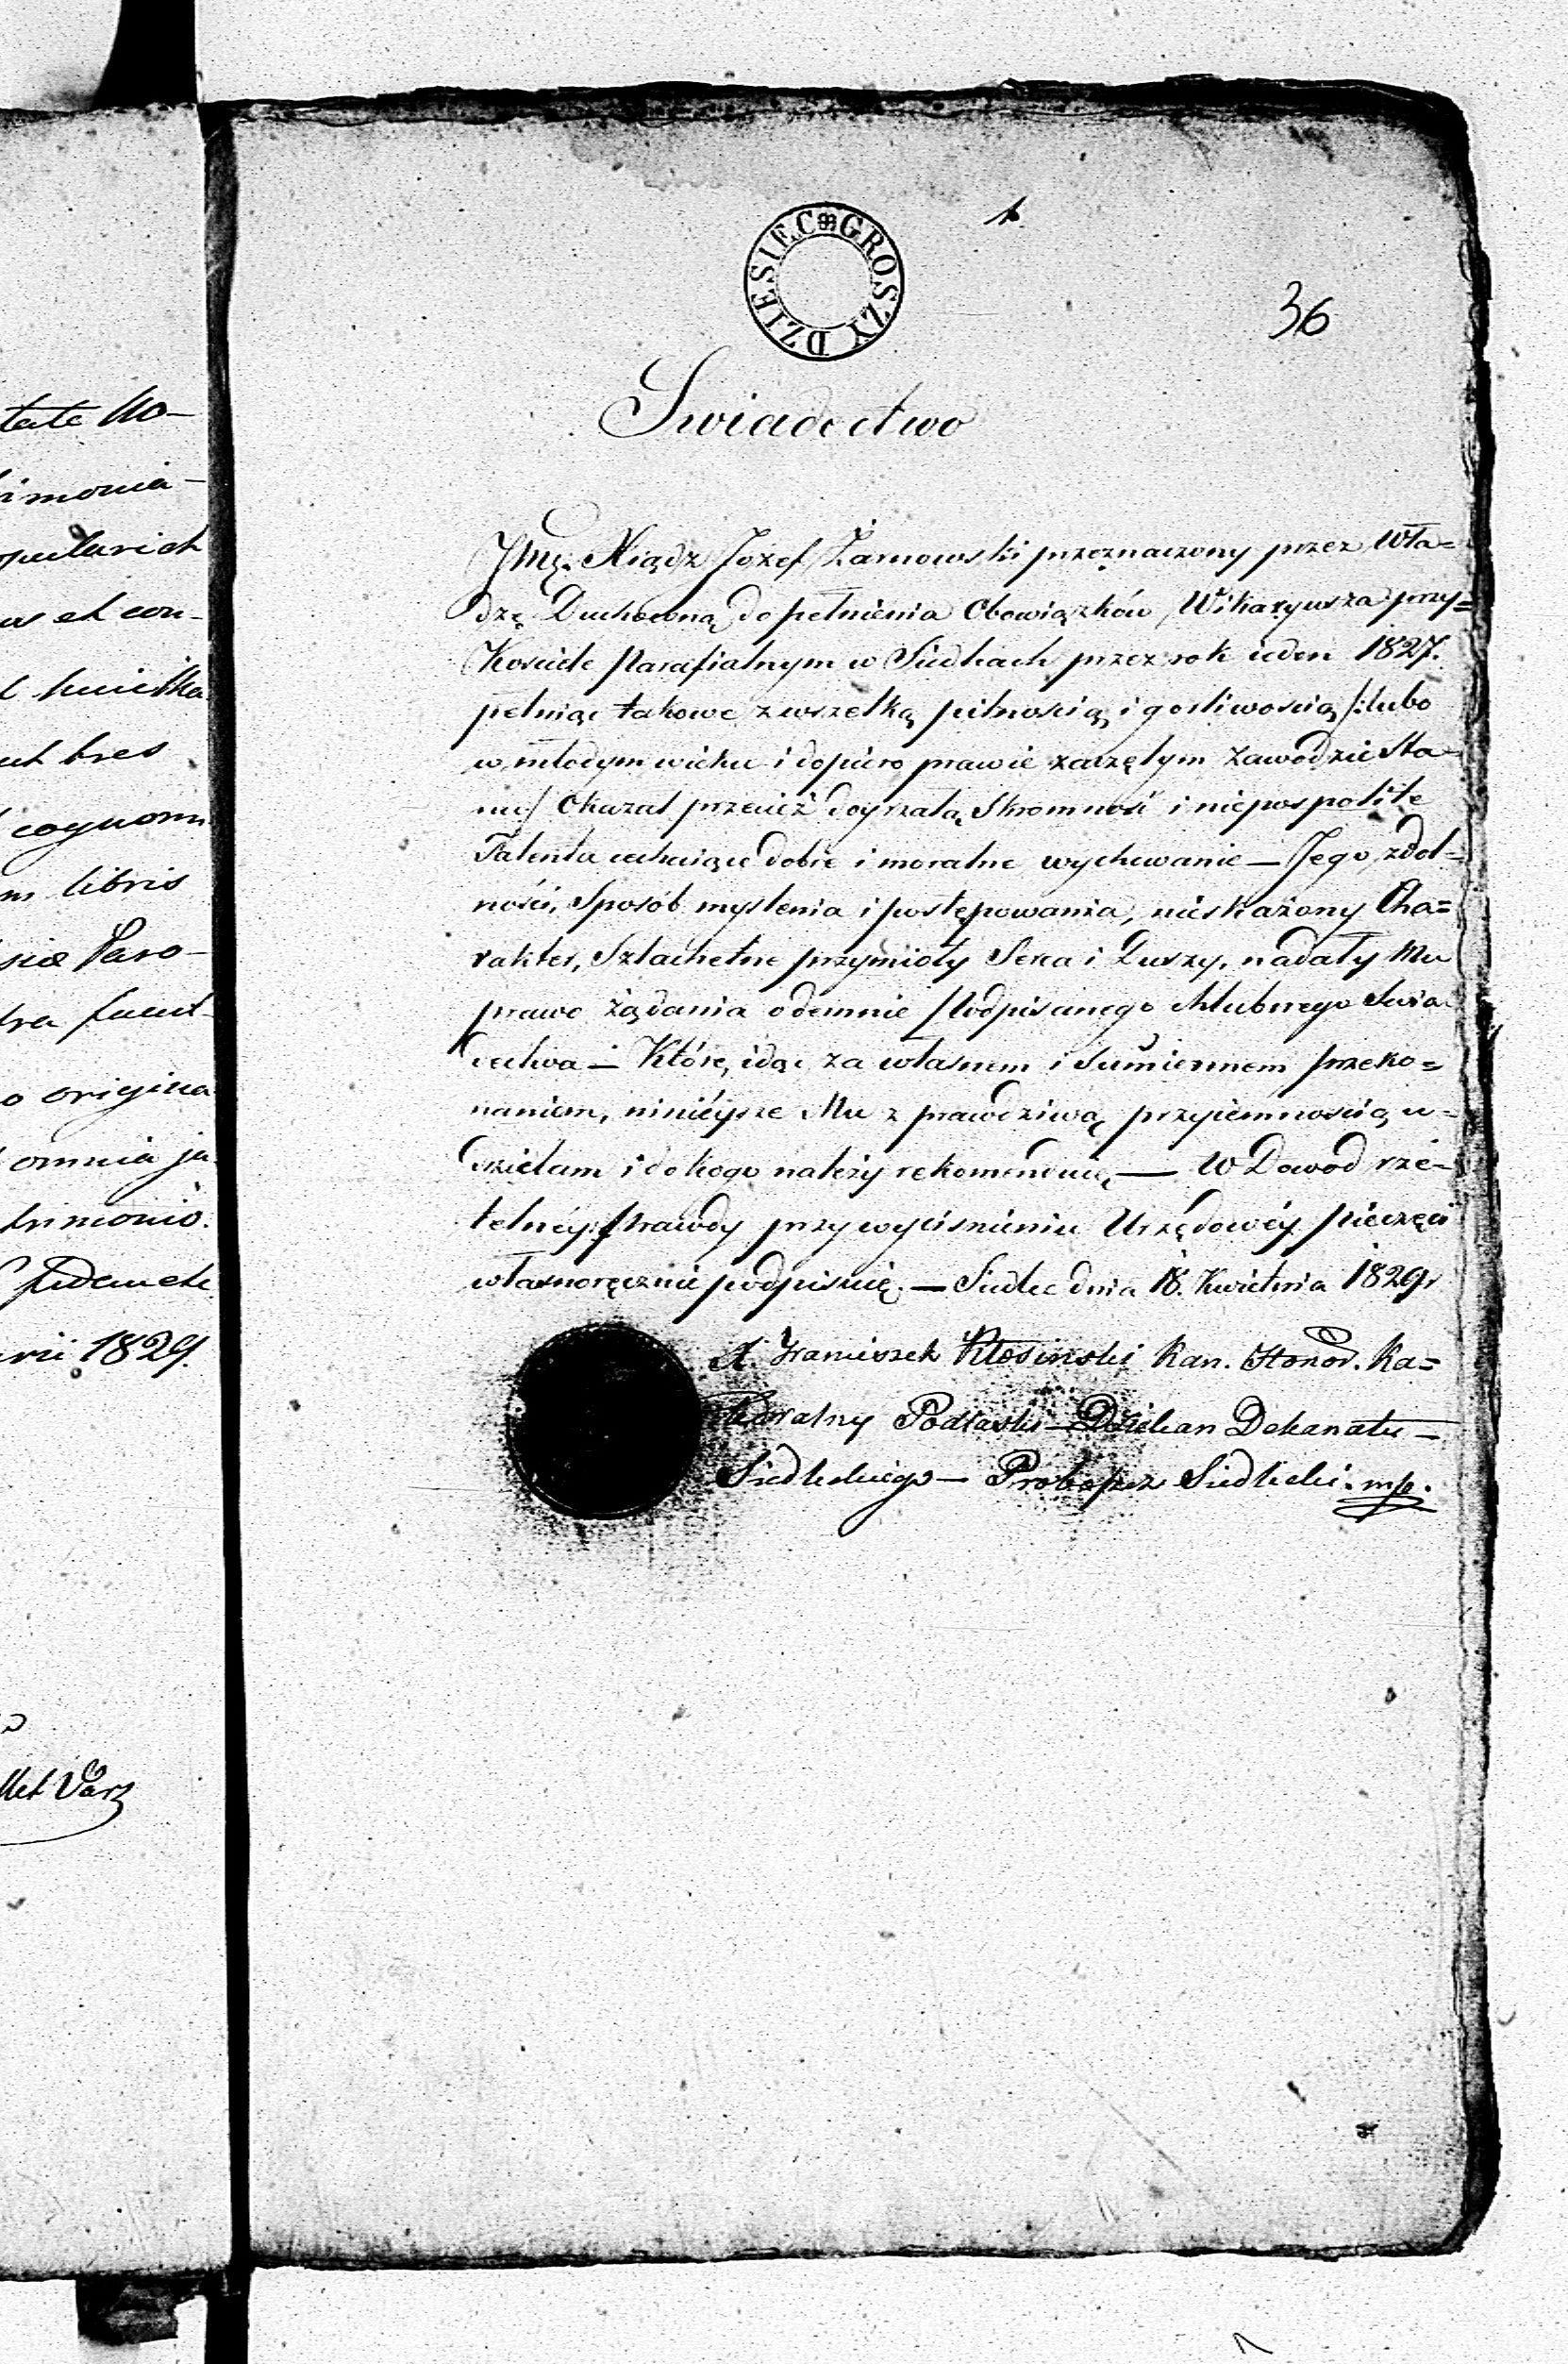 tate No-
imonia-
opularich
us et con-
ut tres
cognom
m libris
siæ Paro-
tra fuerit
o origina
omnia ja
trimonio.
1829.
DZIESIEC GROSZY
36
Swiadectwo
JMę. Xiądz Jozef Żarnowski przeznaczony przez Wła=
dzę Duchowną do pełnienia Obowiązków Wikaryusza przy=
Kosciele Parafialnym w Siedlcach przez rok ieden 1827.
pełniąc takowe z wszelką pilnoscią i gorliwoscią /:lubo
w młodym wieku i dopiero prawie zaczętym zawodzie Sta-
nu:/ Okazał przecież doyrzałą Skromność i niepospolite
Talenta cechuiące dobre i moralne wychowanie — Jego zdol=
ności, Sposób myslenia i postępowania, nieskażony Cha=
rakter, Szlachetne przymioty Serca i Duszy, nadały Mu
prawo żądania odemnie Podpisanego chlubnego Swia-
dectwa — Które, idąc za własnem i Sumiennem przeko=
naniem, ninieysze Mu z prawdziwą przyiemnoscią u-
dzielam i do kogo należy rekomenduię — W Dowod rze-
telnéy prawdy przy wyciśnieniu Urzędowéy pieczęci
własnoręcznie podpisuię. — Siedlce dnia 18. Kwietnia 1829r
X. Franciszek Kłosinski Kan. Honor. Ka=
tedralny Podlaski — Dziekan Dekanatu —
Siedleckiego — Proboszcz Siedlecki. mp.